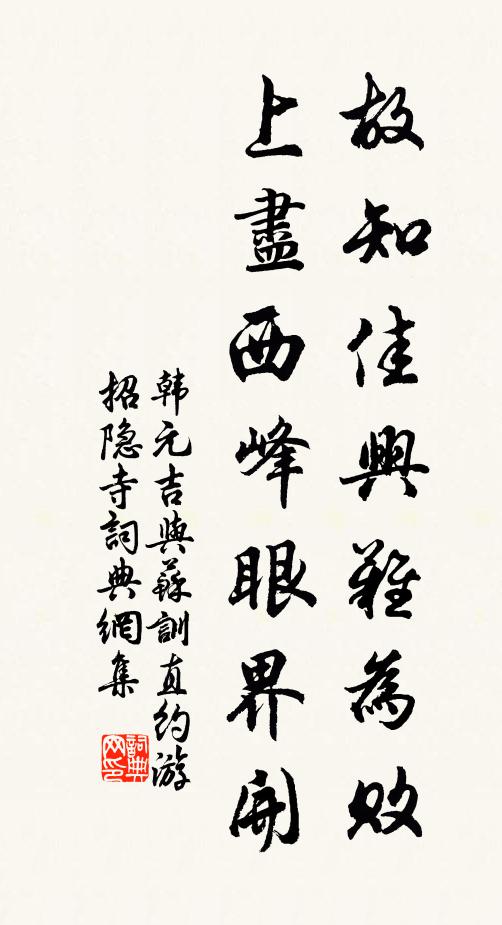 故知佳興難為敗
上盡西峰眼界開
韩元吉與蘇訓直約游
招隐寺詞典網集
詞典
网印